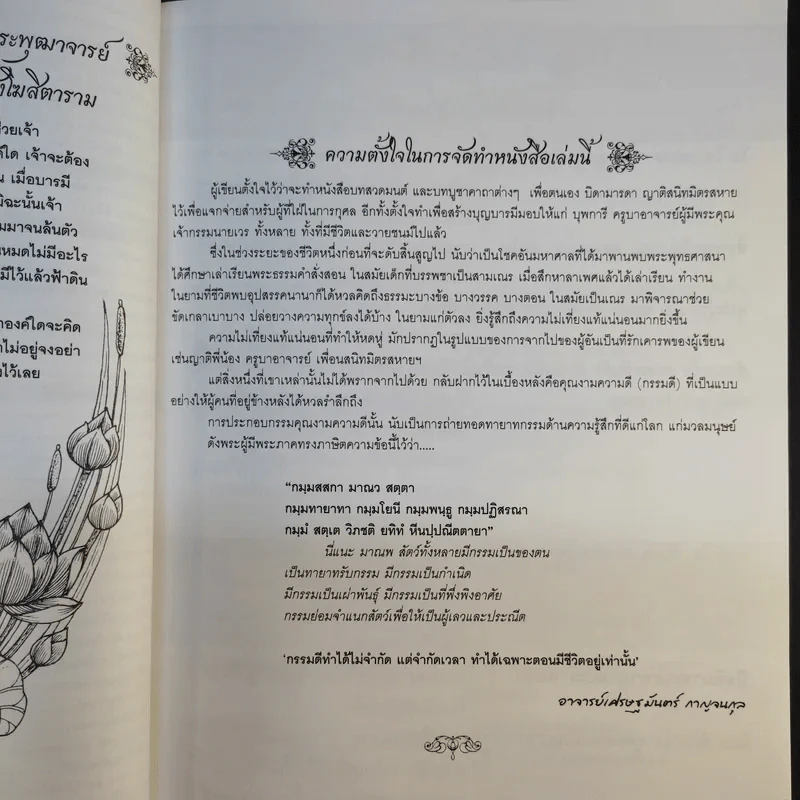 ระพุฒาจารย์
โฆสิตาราม
ช่วยเจ้า
ค์ใด เจ้าจะต้อง
น เมื่อบารมี
มิฉะนั้นเจ้า
มมาจนล้นตัว
นหมดไม่มีอะไร
มีไว้แล้วฟ้าดิน
าองค์ใดจะคิด
าไม่อยู่จงอย่า
งไว้เลย
ความตั้งใจในการจัดทำหนังสือเล่มนี้
ผู้เขียนตั้งใจไว้ว่าจะทำหนังสือบทสวดมนต์ และบทบูชาคาถาต่างๆ เพื่อตนเอง บิดามารดา ญาติสนิทมิตรสหาย
ไว้เพื่อแจกจ่ายสำหรับผู้ที่ใฝ่ในการกุศล อีกทั้งตั้งใจทำเพื่อสร้างบุญบารมีมอบให้แก่ บุพการี ครูบาอาจารย์ผู้มีพระคุณ
เจ้ากรรมนายเวร ทั้งหลาย ทั้งที่มีชีวิตและวายชนม์ไปแล้ว
ซึ่งในช่วงระยะของชีวิตหนึ่งก่อนที่จะดับสิ้นสูญไป นับว่าเป็นโชคอันมหาศาลที่ได้มาพานพบพระพุทธศาสนา
ได้ศึกษาเล่าเรียนพระธรรมคำสั่งสอน ในสมัยเด็กที่บรรพชาเป็นสามเณร เมื่อสึกหาลาเพศแล้วได้เล่าเรียน ทำงาน
ในยามที่ชีวิตพบอุปสรรคนานาก็ได้หวลคิดถึงธรรมะบางข้อ บางวรรค บางตอน ในสมัยเป็นเณร มาพิจารณาช่วย
ขัดเกลาเบาบาง ปล่อยวางความทุกข์ลงได้บ้าง ในยามแก่ตัวลง ยิ่งรู้สึกถึงความไม่เที่ยงแท้แน่นอนมากยิ่งขึ้น
ความไม่เที่ยงแท้แน่นอนที่ทำให้หดหู่ มักปรากฏในรูปแบบของการจากไปของผู้อันเป็นที่รักเคารพของผู้เขียน
เช่นญาติพี่น้อง ครูบาอาจารย์ เพื่อนสนิทมิตรสหายฯ
แต่สิ่งหนึ่งที่เขาเหล่านั้นไม่ได้พรากจากไปด้วย กลับฝากไว้ในเบื้องหลังคือคุณงามความดี (กรรมดี) ที่เป็นแบบ
อย่างให้ผู้คนที่อยู่ข้างหลังได้หวลรำลึกถึง
การประกอบกรรมคุณงามความดีนั้น นับเป็นการถ่ายทอดทายาทกรรมด้านความรู้สึกที่ดีแก่โลก แก่มวลมนุษย์
ดังพระผู้มีพระภาคทรงภาษิตความข้อนี้ไว้ว่า.....
“กมฺมสสกา มาณว สตฺตา
กมฺมทายาทา กมฺมโยนี กมฺมพนฺธู กมฺมปฏิสรณา
กมฺมํ สตฺเต วิภชติ ยทิทํ หีนปฺปณีตตายา”
นี่แนะ มาณพ สัตว์ทั้งหลายมีกรรมเป็นของตน
เป็นทายาทรับกรรม มีกรรมเป็นกำเนิด
มีกรรมเป็นเผ่าพันธุ์ มีกรรมเป็นที่พึ่งพิงอาศัย
กรรมย่อมจำแนกสัตว์เพื่อให้เป็นผู้เลวและประณีต
‘กรรมดีทำได้ไม่จำกัด แต่จำกัดเวลา ทำได้เฉพาะตอนมีชีวิตอยู่เท่านั้น’
อาจารย์เศรษฐมันตร์ กาญจนกุล